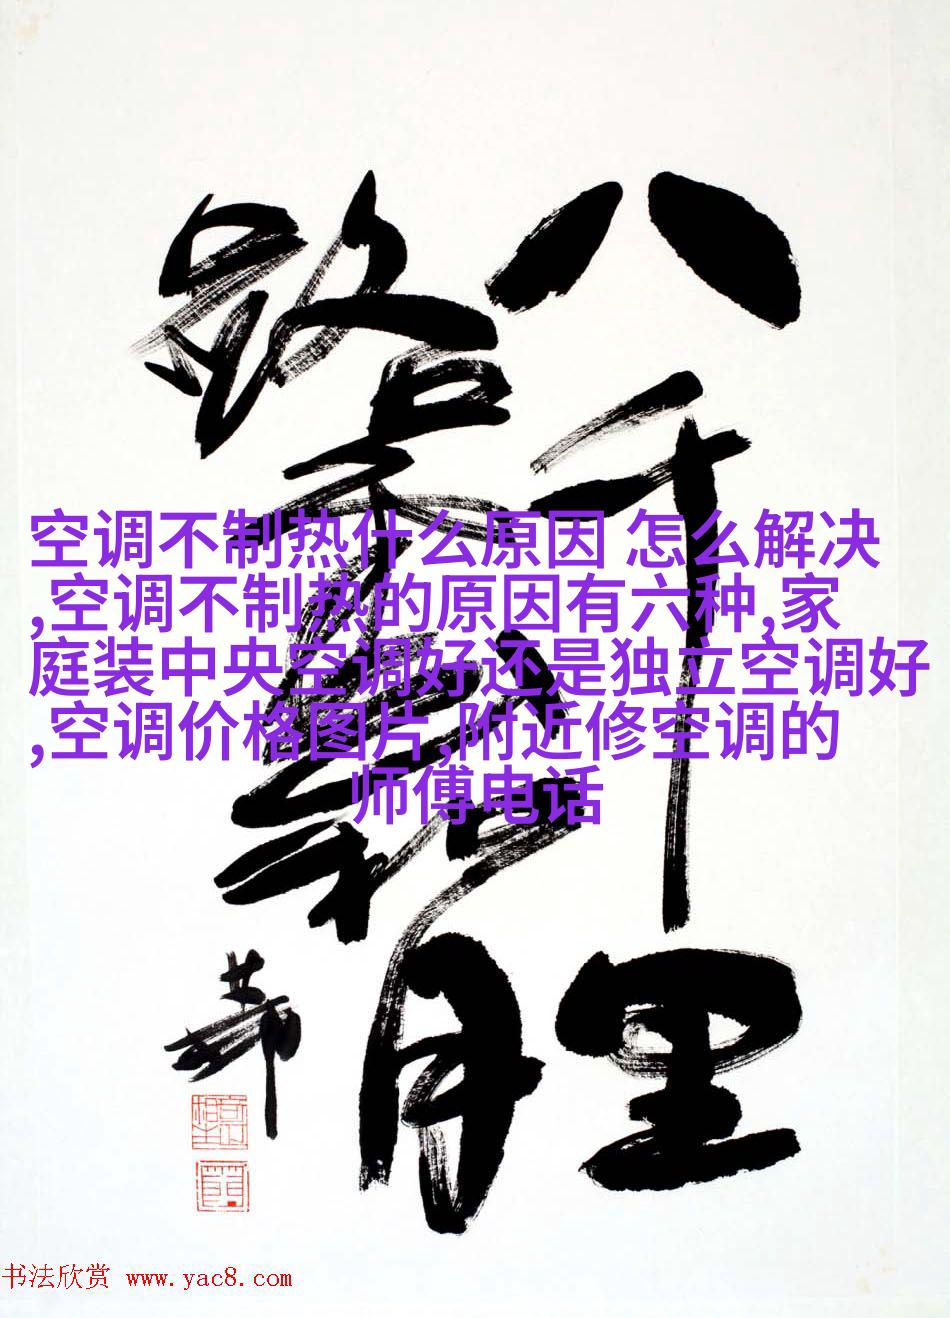 八千里
路雲和月
空调不制热什么原因 怎么解决
,空调不制热的原因有六种,家
庭装中央空调好还是独立空调好
,空调价格图片,附近修空调的
师傅电话
书法欣赏 www.yac8.com